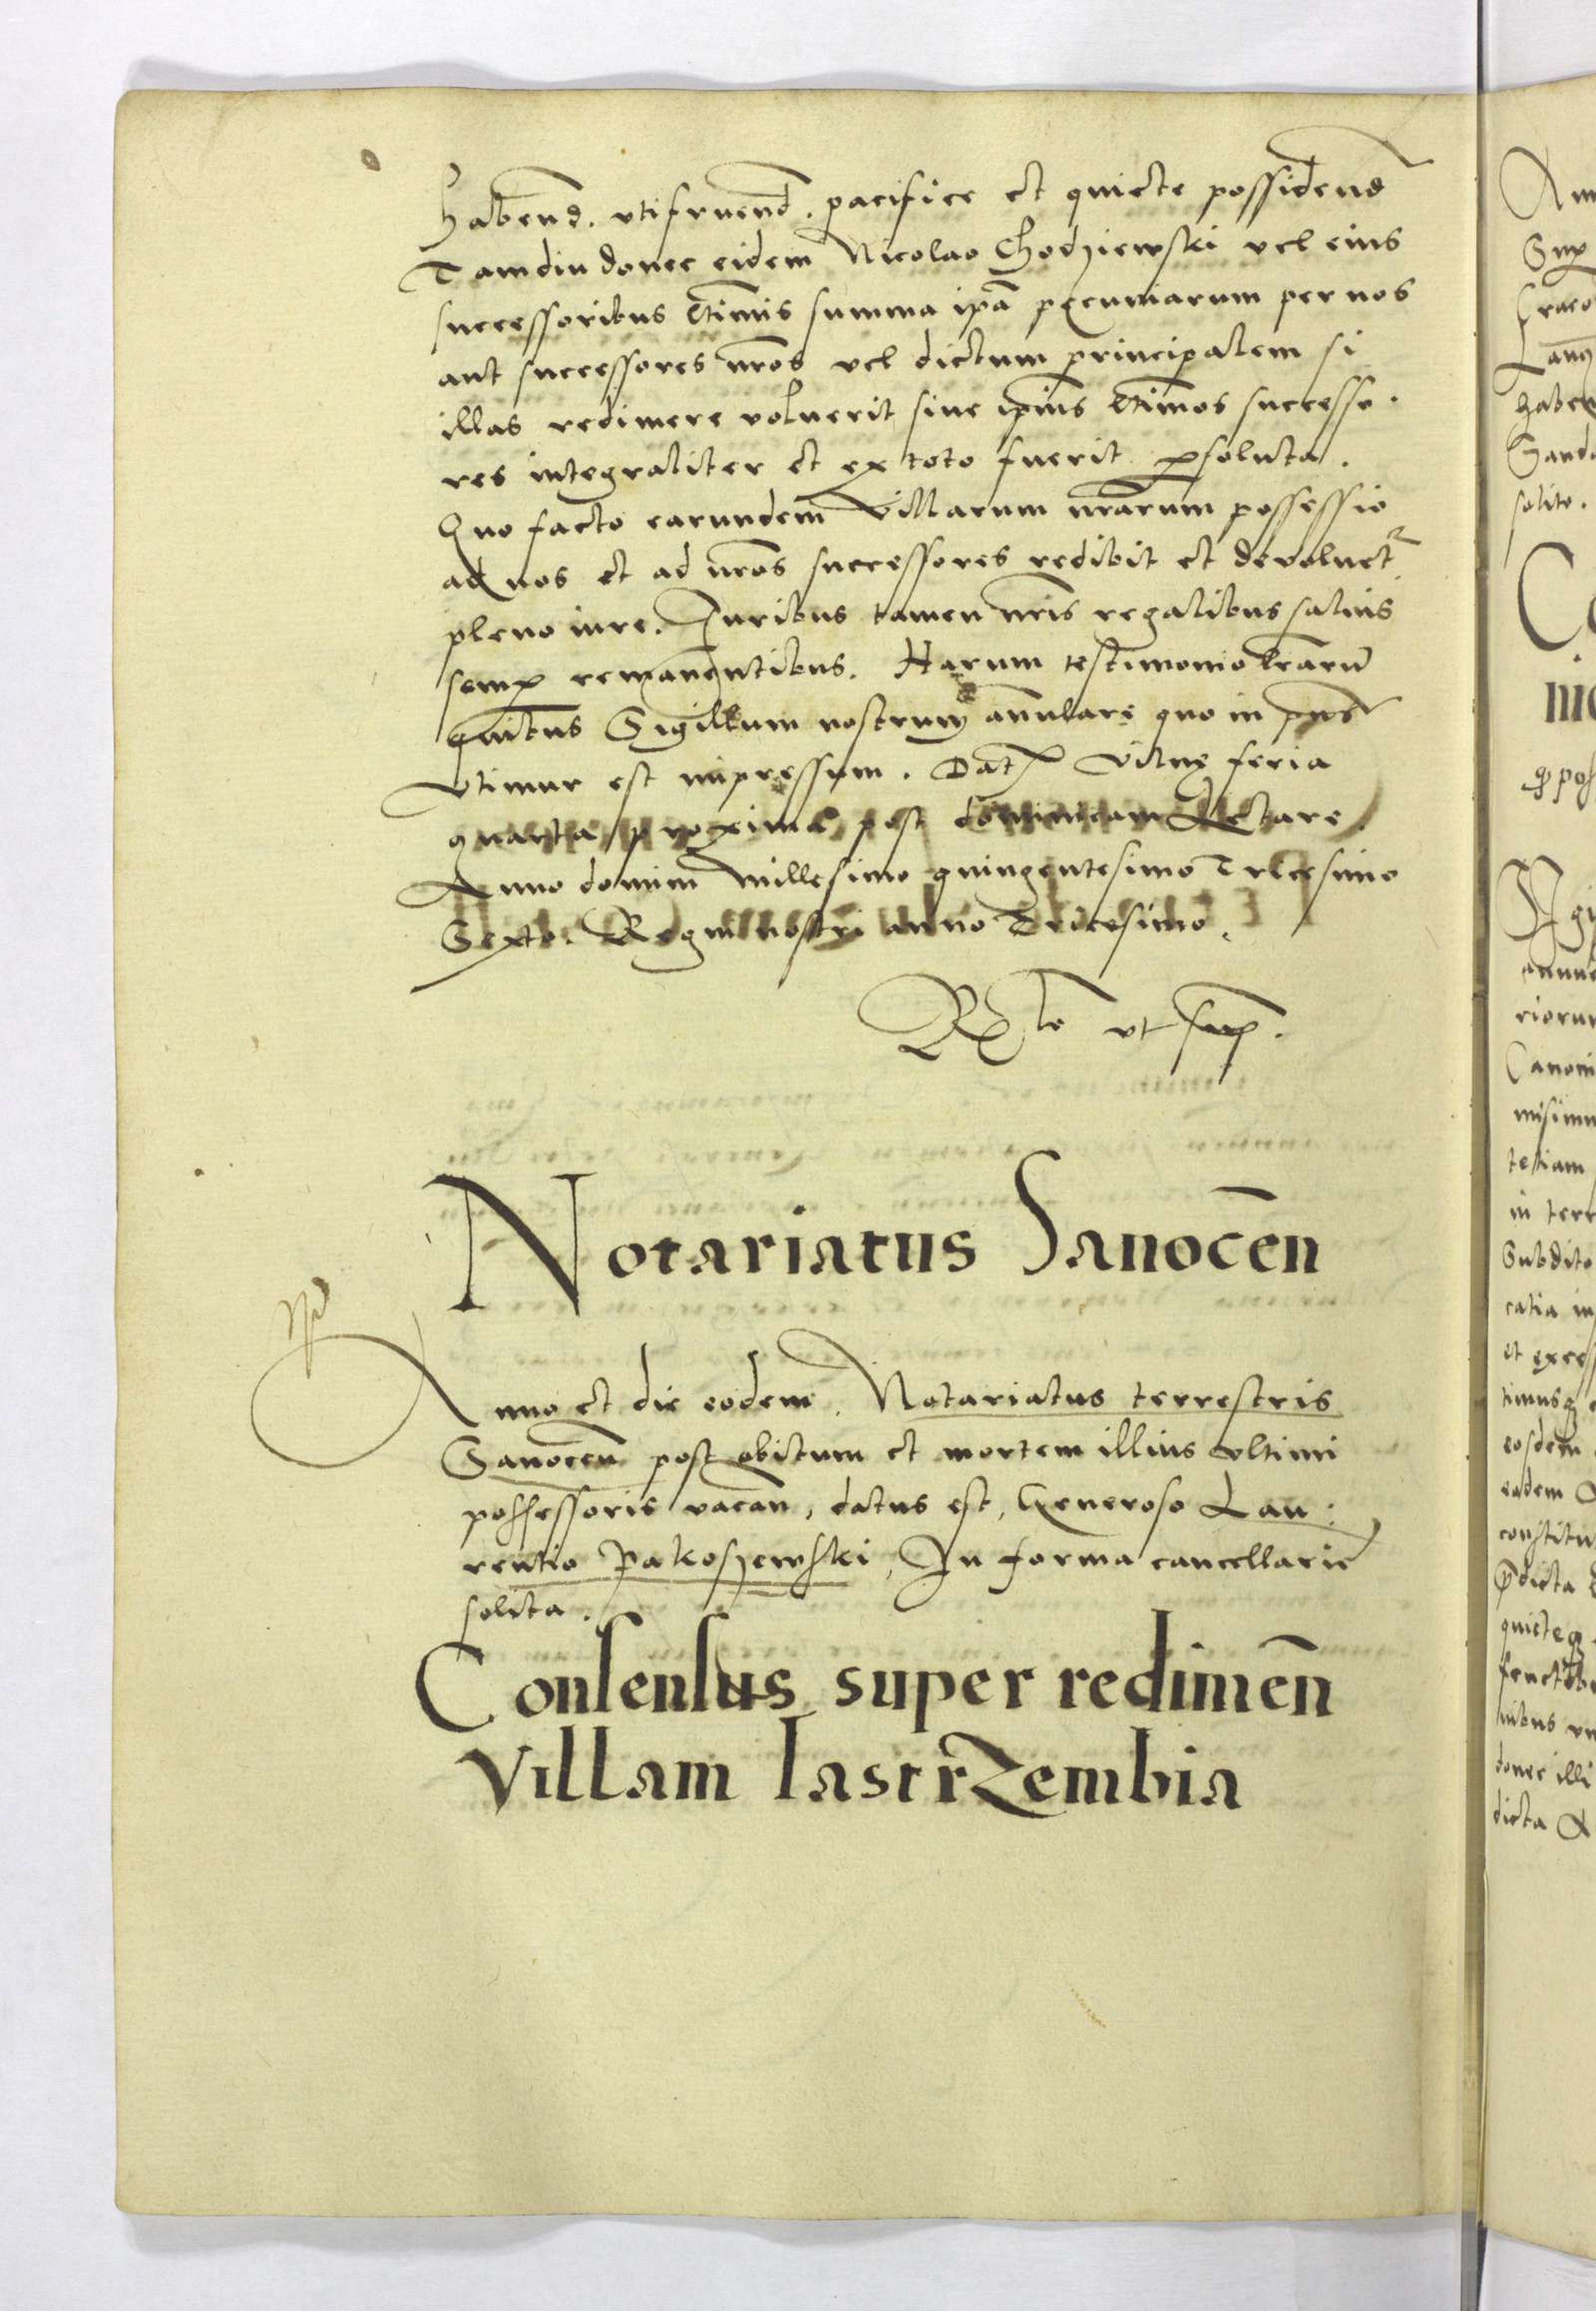 habend. utifruend. pacifice et quiete possidend
Tamdiu donec eidem Nicolao Chodziewski vel eius
successoribus ltimis summa ipa pecuniarum per nos
aut successores nros vel dictum principalem si
illas redimere voluerit sive ipius ltimos successo.
res integraliter et ex toto fuerit psoluta.
Quo facto earundem Villarum nrarum possessio
ad nos et ad nros successores redibit et devoluet
pleno iure. Iuribus tamen nris regalibus salvis
semp remanentibus. Harum testimonio lrarum
quibus Sigillum nostrum annulare quo in pnt
Utimur est impressum. Dat Vilnę feria
quarta proxima post dominicam Lętare.
Anno domini Millesimo quingentesimo Tricesimo
Sexto. Regni nostri anno Tricesimo.
Rlo ut sup.
Notariatus Sanocen
Anno et die eodem. Notariatus terrestris
Sanocen post obitum et mortem illius ultimi
possessoris vacan, datus est, Generoso Lau:
rentio Pakoszewski, In forma cancellarie
solita.
Consensus super redimen
Villam Iastrzembia
Ann
Sup
Craco
Lanc
haben
Sand
solito.